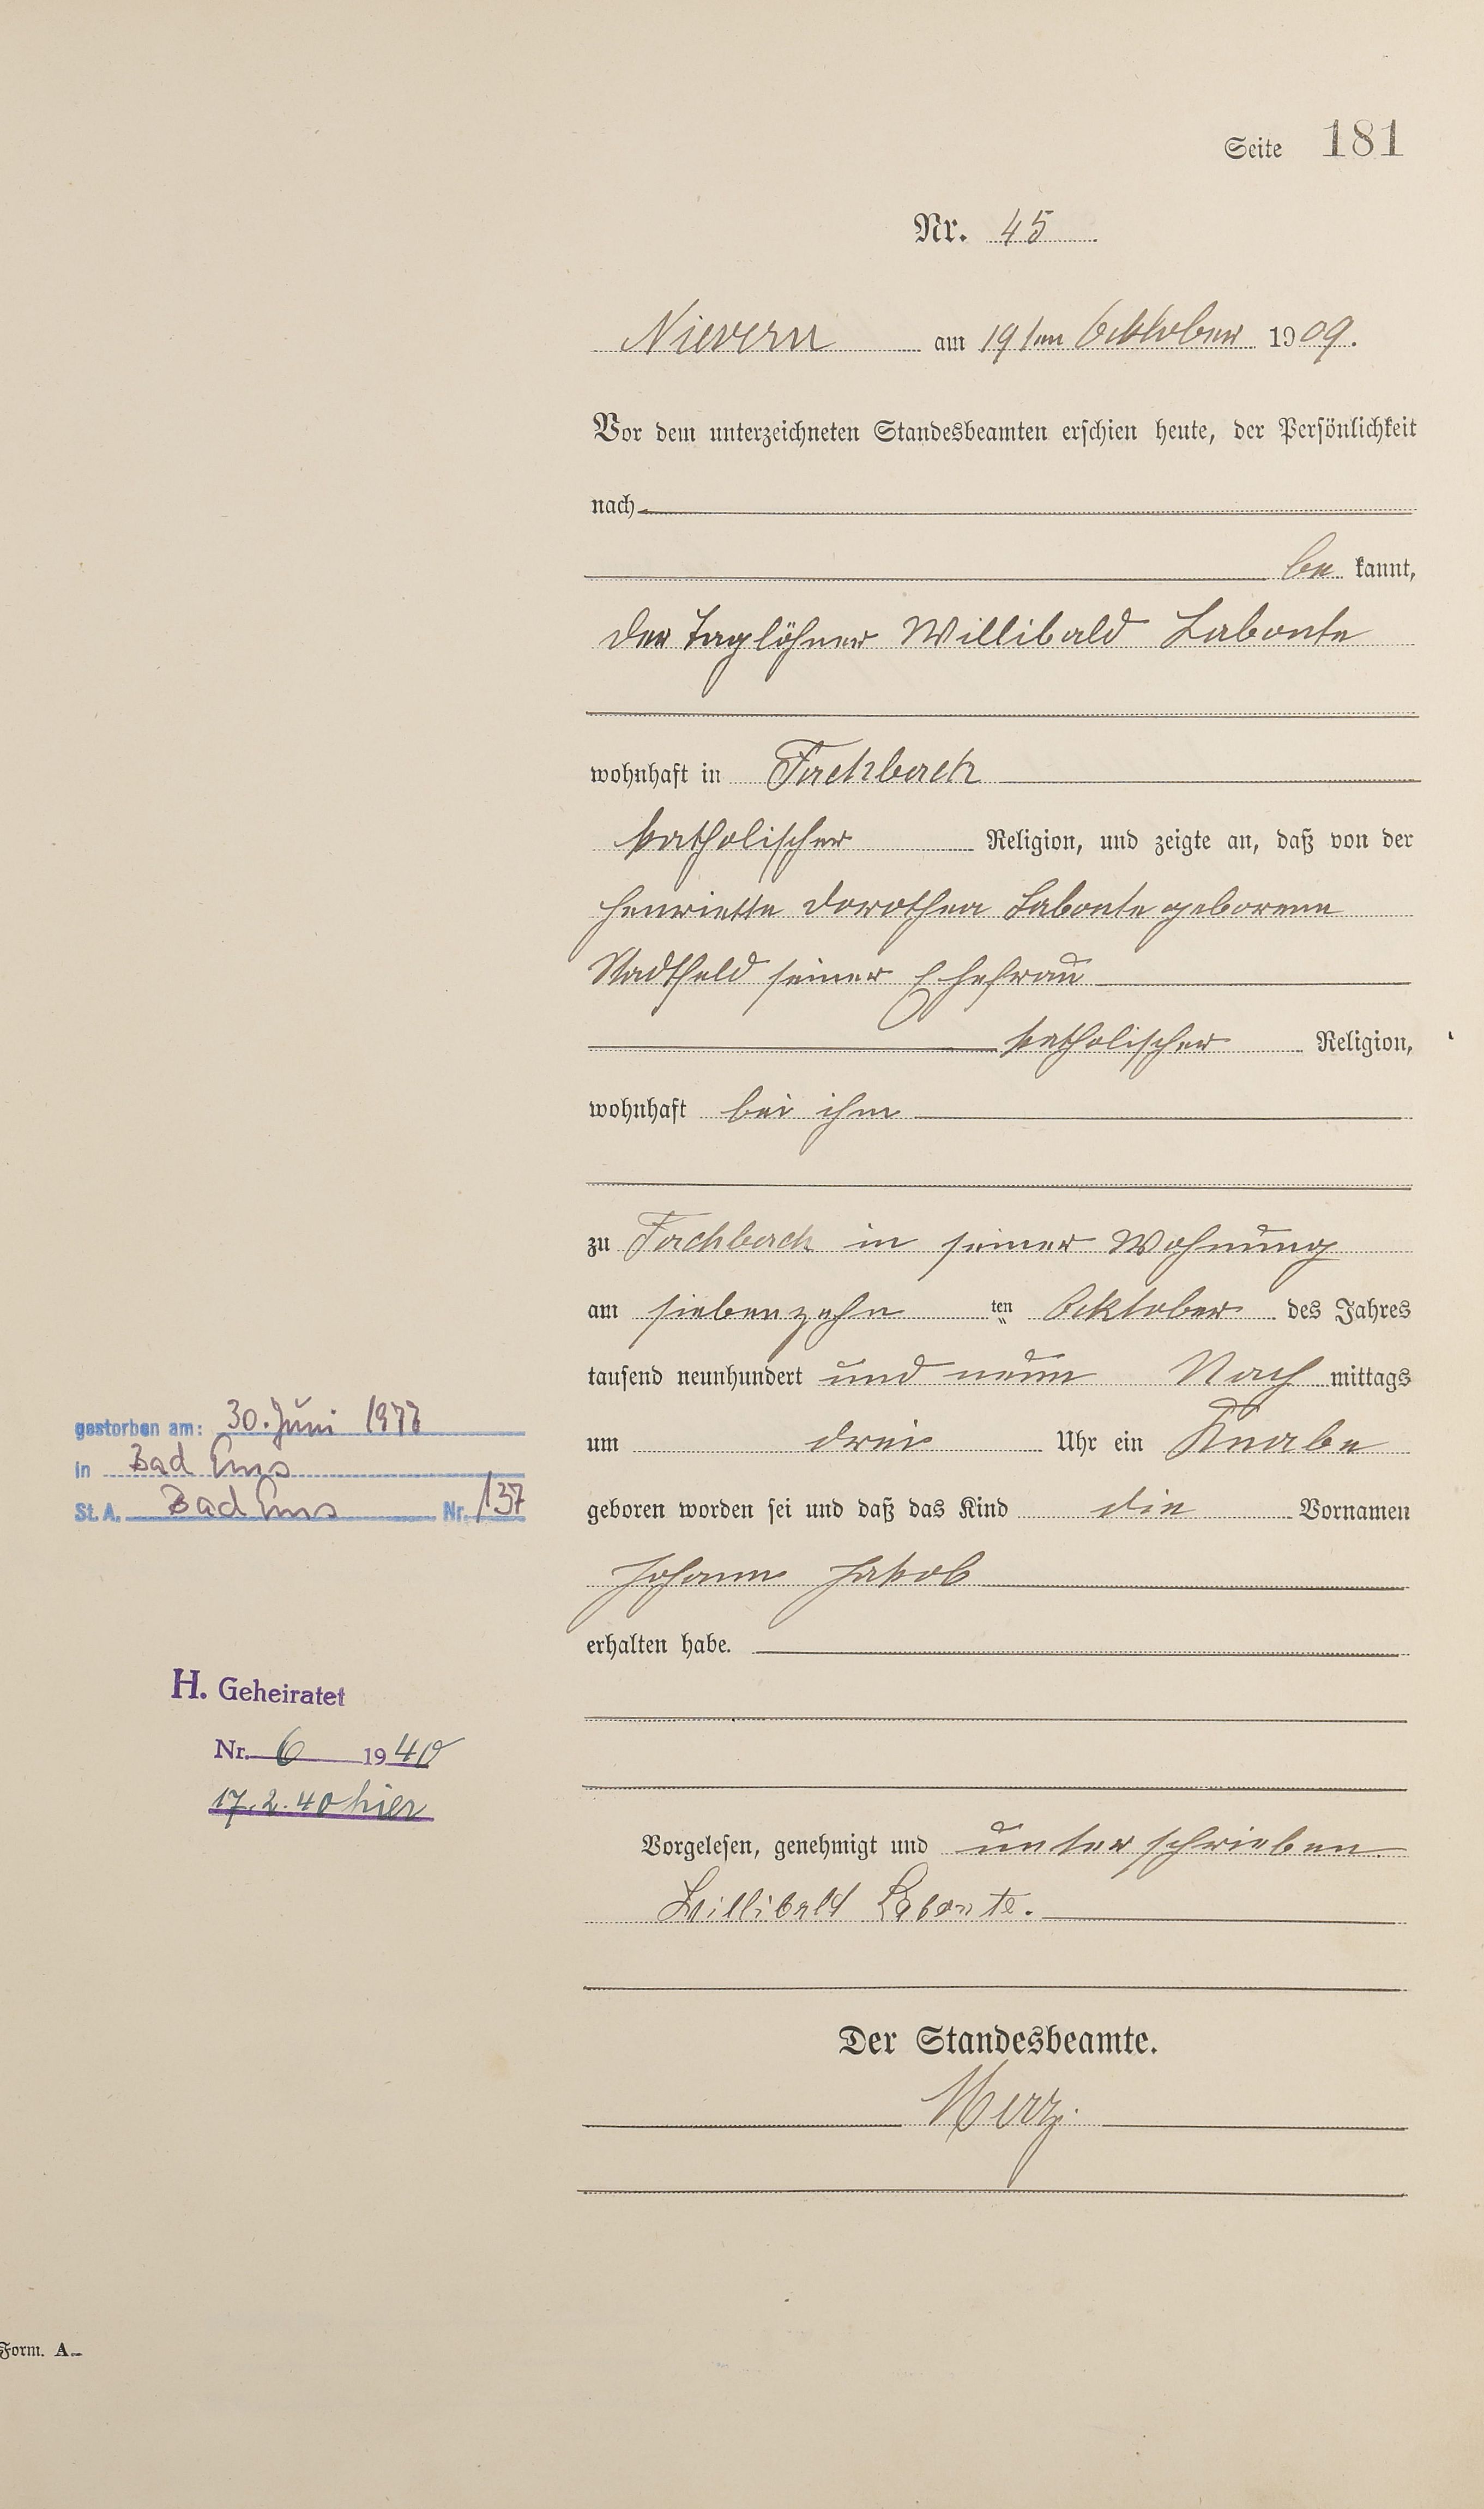 Seite 181
Nr. 45
Nievern am 19ten Oktober 1909.
Vor dem unterzeichneten Standesbeamten erschien heute, der Persönlichkeit
nach
be kannt,
der Taglöhner Willibald Labonte
wohnhaft in Fachbach
katholischer Religion, und zeigte an, daß von der
Henriette Dorothea Labonte geborene
Stadtfeld seiner Ehefrau
katholischer Religion,
wohnhaft bei ihm
zu Fachbach in seiner Wohnung
am siebenzehn ten Oktober des Jahres
tausend neunhundert und neun Nach mittags
um drei Uhr ein Knabe
geboren worden sei und daß das Kind die Vornamen
Johann Jakob
erhalten habe.
gestorben am: 30. Juni 1977
in Bad Ems
St. A. Bad Ems Nr. 137
H. Geheiratet
Nr. 6 1940
17.2.40 hier
Vorgelesen, genehmigt und unterschrieben.
Willibald Labonte.
Der Standesbeamte.
Merz.
Form. A.